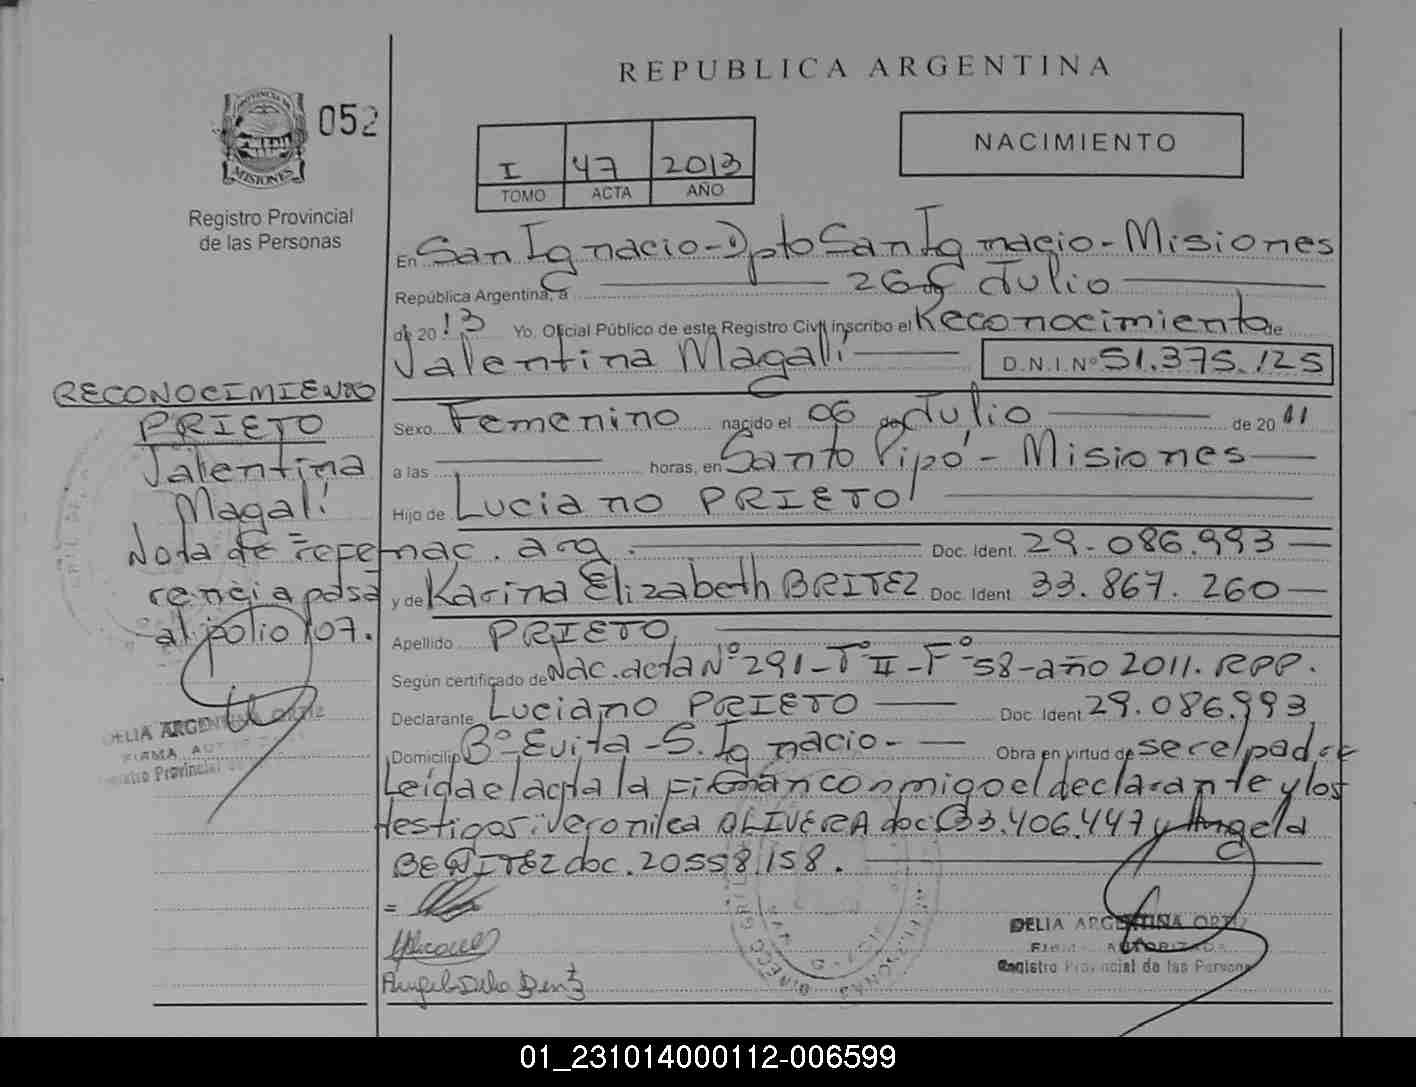 REPUBLICA ARGENTINA
PROVINCIA DE
MISIONES
052
Registro Provincial
de las Personas
I 47 2013
TOMO ACTA AÑO
NACIMIENTO
En San Ignacio - Dpto San Ignacio - Misiones
República Argentina, a 26 de Julio
de 2013 Yo. Oficial Público de este Registro Civil inscribo el Reconocimiento de
Valentina Magalí D.N.I.Nº 51.375.125
Sexo Femenino nacido el 06 de Julio de 2011
a las horas, en Santo Pipó - Misiones
Hijo de Luciano PRIETO
nac. arg. Doc. Ident. 29.086.993
y de Karina Elizabeth BRITEZ Doc. Ident 33.867.260
Apellido PRIETO
Según certificado de Nac. acta Nº 291 - Tº II - Fº 58 - año 2011. RPP.
Declarante Luciano PRIETO Doc. Ident 29.086.993
Domicilio Bº Evita - S. Ignacio. - Obra en virtud de ser el padre
Leída el acta la firman conmigo el declarante y los
testigos: Veronica OLIVERA doc. 33.406.447 y Angela
BENITEZ doc. 20.558.158.
DELIA ARGENTINA ORTIZ
FIRMA AUTORIZADA
Registro Provincial de las Personas
RECONOCIMIENTO
PRIETO
Valentina
Magalí
Nota de refe
rencia pasa
al folio 107.
DELIA ARGENTINA ORTIZ
FIRMA
Registro Provincial
01_231014000112-006599